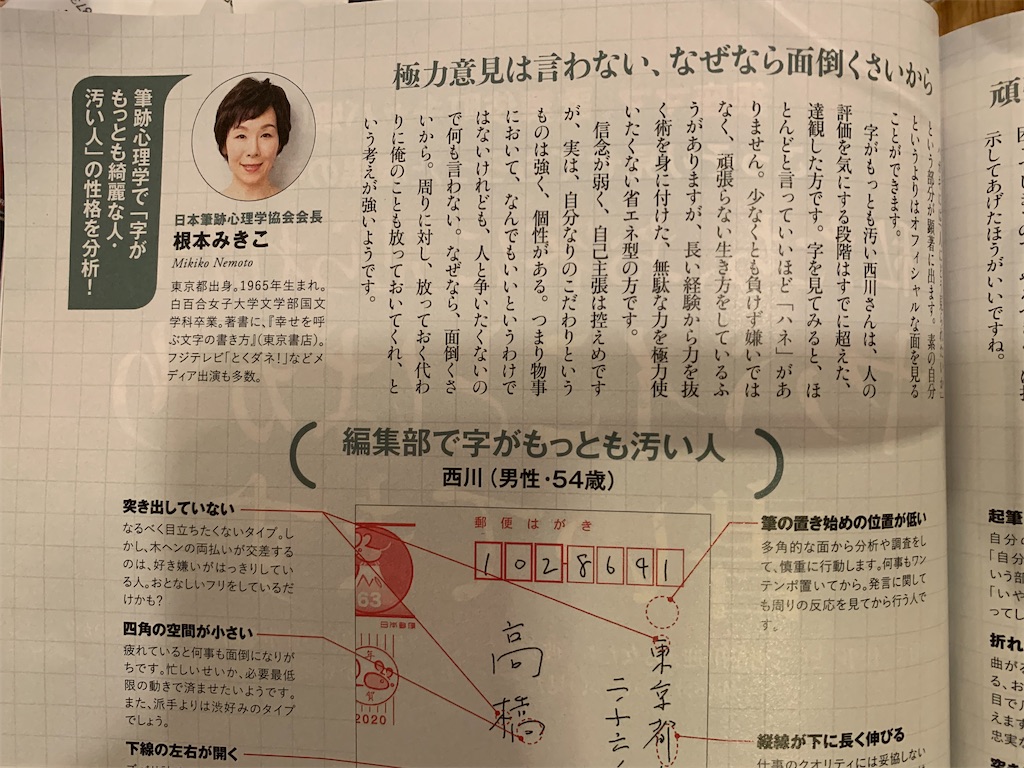 極力意見は言わない、なぜなら面倒くさいから
という部分が顕著に出ます。素の自分
というよりはオフィシャルな面を見る
ことができます。
字がもっとも汚い西川さんは、人の
評価を気にする段階はすでに超えた、
達観した方です。字を見てみると、ほ
とんどと言っていいほど「ハネ」があ
りません。少なくとも負けず嫌いでは
なく、頑張らない生き方をしているふ
うがありますが、長い経験から力を抜
く術を身に付けた、無駄な力を極力使
いたくない省エネ型の方です。
信念が弱く、自己主張は控えめです
が、実は、自分なりのこだわりという
ものは強く、個性がある。つまり物事
において、なんでもいいというわけで
はないけれども、人と争いたくないの
で何も言わない。なぜなら、面倒くさ
いから。周りに対し、放っておく代わ
りに俺のことも放っておいてくれ、と
いう考えが強いようです。
筆跡心理学で「字が
もっとも綺麗な人・
汚い人」の性格を分析！
日本筆跡心理学協会会長
根本みきこ
Mikiko Nemoto
東京都出身。1965年生まれ。
白百合女子大学文学部国文
学科卒業。著書に、『幸せを呼
ぶ文字の書き方』（東京書店）。
フジテレビ「とくダネ！」などメ
ディア出演も多数。
編集部で字がもっとも汚い人
西川（男性・54歳）
突き出していない
なるべく目立ちたくないタイプ。し
かし、木ヘンの両払いが交差する
のは、好き嫌いがはっきりしてい
る人。おとなしいフリをしているだ
けかも？
四角の空間が小さい
疲れていると何事も面倒になりが
ちです。忙しいせいか、必要最低
限の動きで済ませたいようです。
また、派手よりは渋好みのタイプ
でしょう。
下線の左右が開く
郵便はがき
102-8641
63
日本郵便
年賀
2020
東京都
二十六
高橋
筆の置き始めの位置が低い
多角的な面から分析や調査をし
て、慎重に行動します。何事もワン
テンポ置いてから。発言に関して
も周りの反応を見てから行う人で
す。
縦線が下に長く伸びる
仕事のクオリティには妥協しない
示してあげたほうがいいですね。
起筆
自分の
「自分
いう部
「いや
ってし
折れ
曲が
る、お
目で
えます
忠実